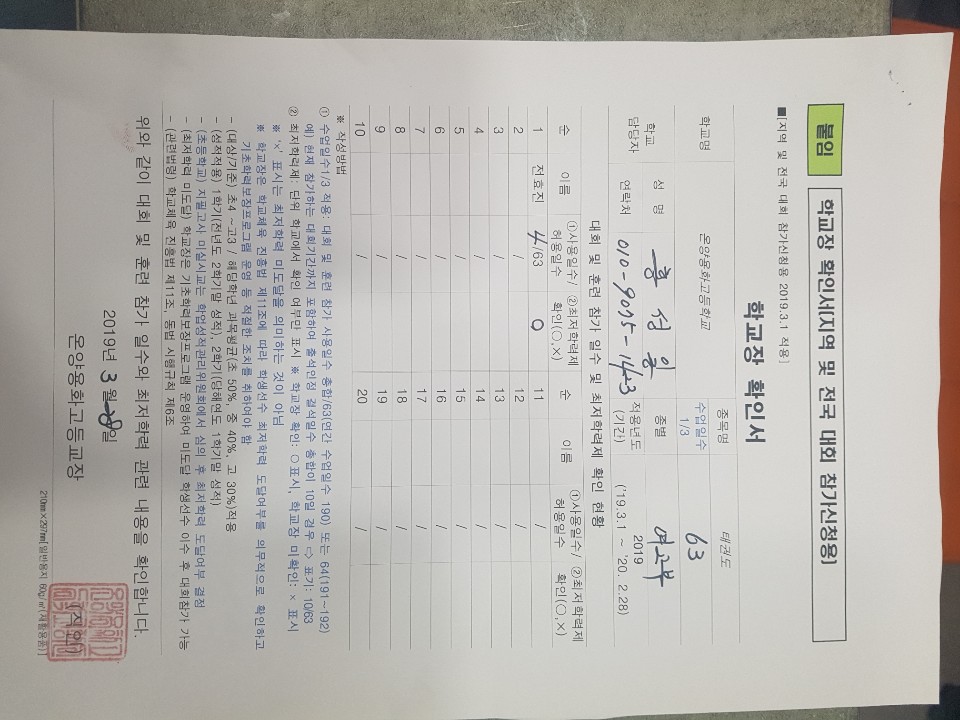 붙임
학교장 확인서[지역 및 전국 대회 참가신청용]
■[지역 및 전국 대회 참가신청용 2019.3.1 적용]
학교장 확인서
학교명 온양용화고등학교 종목명 태권도
수업일수 1/3 63
학교 담당자 성 명 종별 여고부
연락처 010-9075-1423 적용년도 (기간) 2019 ('19.3.1 ~ '20. 2.28)
대회 및 훈련 참가 일수 및 최저학력제 확인 현황
순 이름 ①사용일수/허용일수 ②최저학력제 확인(○,×) 순 이름 ①사용일수/허용일수 ②최저학력제 확인(○,×)
1 전효진 4/63 O 11 /
2 / 12 /
3 / 13 /
4 / 14 /
5 / 15 /
6 / 16 /
7 / 17 /
8 / 18 /
9 / 19 /
10 / 20 /
※ 작성방법
① 수업일수1/3 적용: 대회 및 훈련 참가 사용일수 총합/63(연간 수업일수 190) 또는 64(191~192)
예) 현재 참가하는 대회기간까지 포함하여 출석인정 결석일수 총합이 10일 경우 ⇨ 표기: 10/63
② 최저학력제: 단위 학교에서 확인 여부만 표시 ※ 학교장 확인: ○표시, 학교장 미확인: × 표시
※ '×' 표시는 최저학력 미도달을 의미하는 것이 아님
※ 학교장은 학교체육 진흥법 제11조에 따라 학생선수 최저학력 도달여부를 의무적으로 확인하고
기초학력보장프로그램 운영 등 적절한 조치를 취하여야 함
- (대상/기준) 초4 ~고3 / 해당학년 과목평균(초 50%, 중 40%, 고 30%)적용
- (성적적용) 1학기(전년도 2학기말 성적), 2학기(당해연도 1학기말 성적)
- (초등학교) 지필고사 미실시교는 학업성적관리위원회에서 심의 후 최저학력 도달여부 결정
- (최저학력 미도달) 학교장은 기초학력보장프로그램 운영하여 미도달 학생선수 이수 후 대회참가 가능
- (관련법령) 학교체육 진흥법 제11조, 동법 시행규칙 제6조
위와 같이 대회 및 훈련 참가 일수와 최저학력 관련 내용을 확인합니다.
2019년 3월 28일
온양용화고등교장 (직인)
210㎜×297㎜[일반용지 60g/㎡(재활용품)]